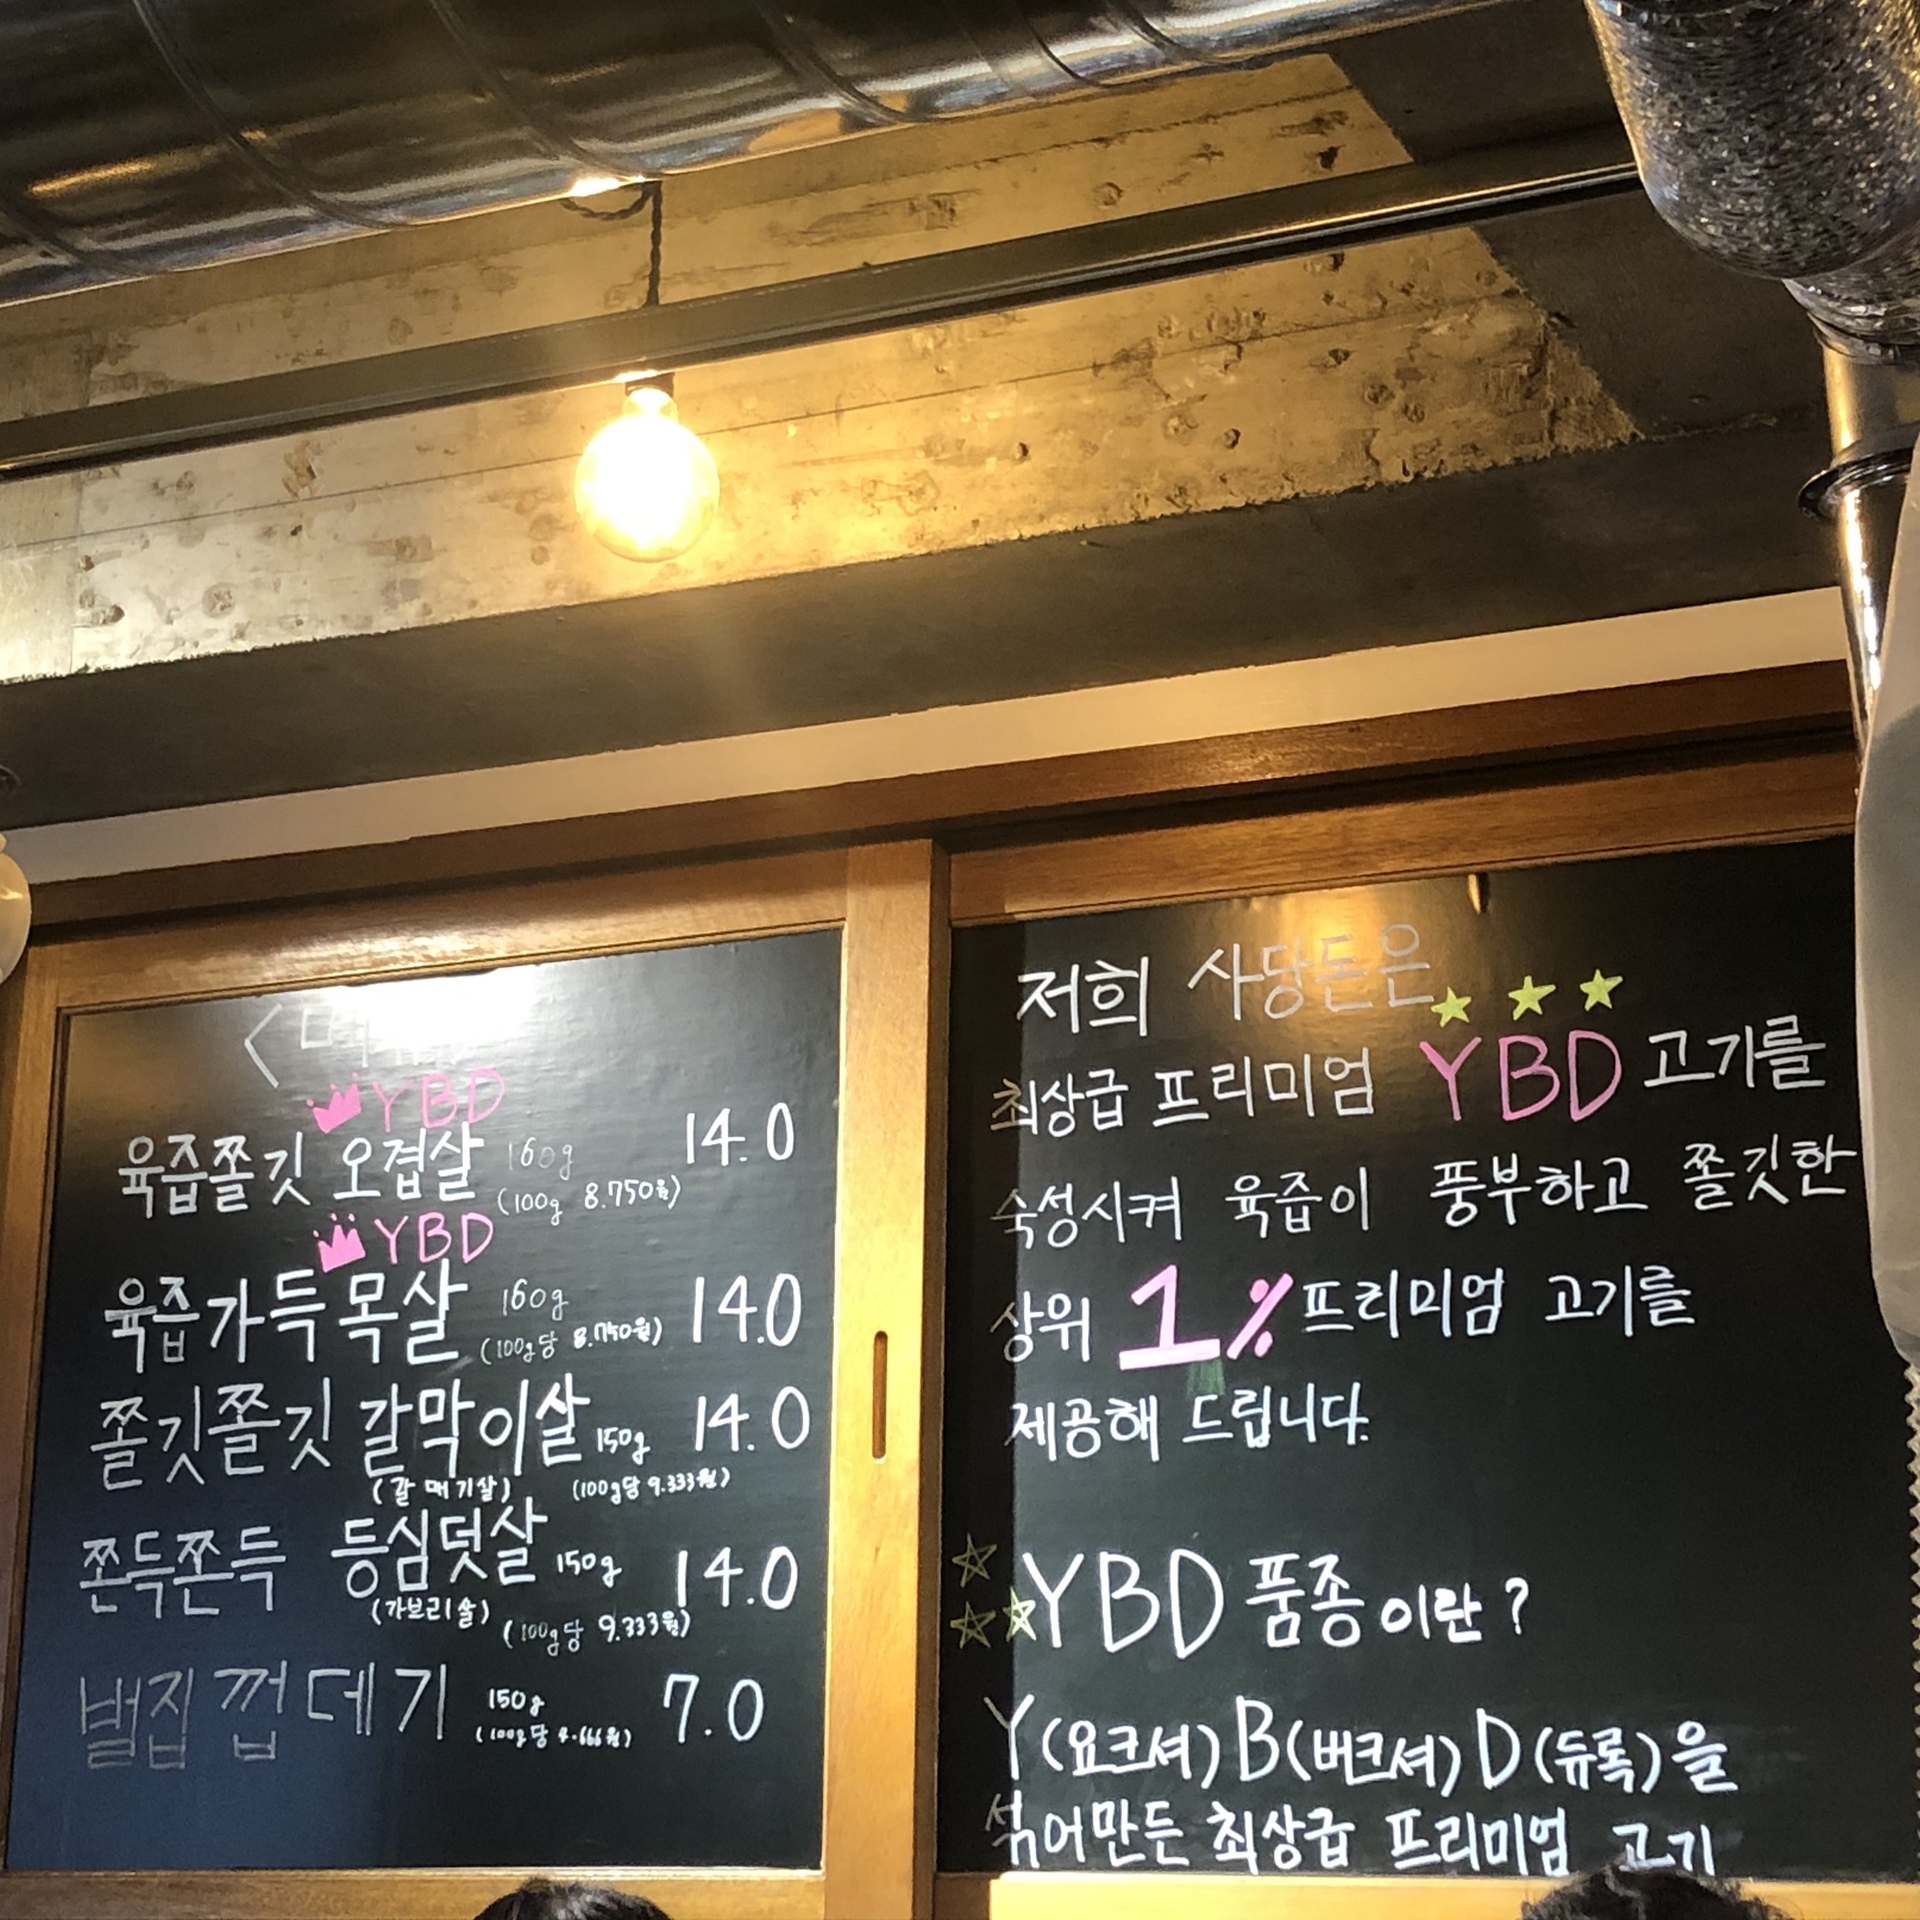 YBD
육즙쫄깃 오겹살 160g 14.0
(100g 8.750원)
YBD
육즙가득 목살 160g 14.0
(100g당 8.750원)
쫄깃쫄깃 갈막이살 150g 14.0
(갈매기살) (100g당 9.333원)
쫀득쫀득 등심덧살 150g 14.0
(가브리살) (100g당 9.333원)
벌집껍데기 150g 7.0
(100g당 4.666원)
저희 사당돈은
최상급 프리미엄 YBD 고기를
숙성시켜 육즙이 풍부하고 쫄깃한
상위 1% 프리미엄 고기를
제공해 드립니다.
YBD 품종이란?
Y(요크셔) B(버크셔) D(듀록)을
섞어만든 최상급 프리미엄 고기